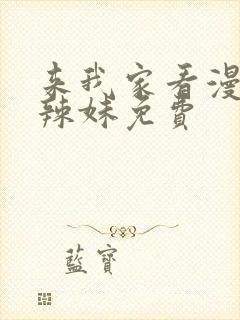 来我家看漫
辣妹免费
藍寶